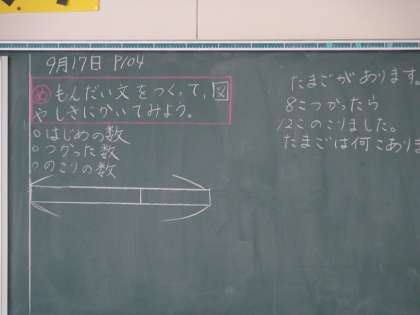 9月17日 P104
め もんだい文をつくって、図
やしきにかいてみよう。
○はじめの数
○つかった数
○のこりの数
たまごがあります。
8こつかったら
12このこりました。
たまごは何こありま